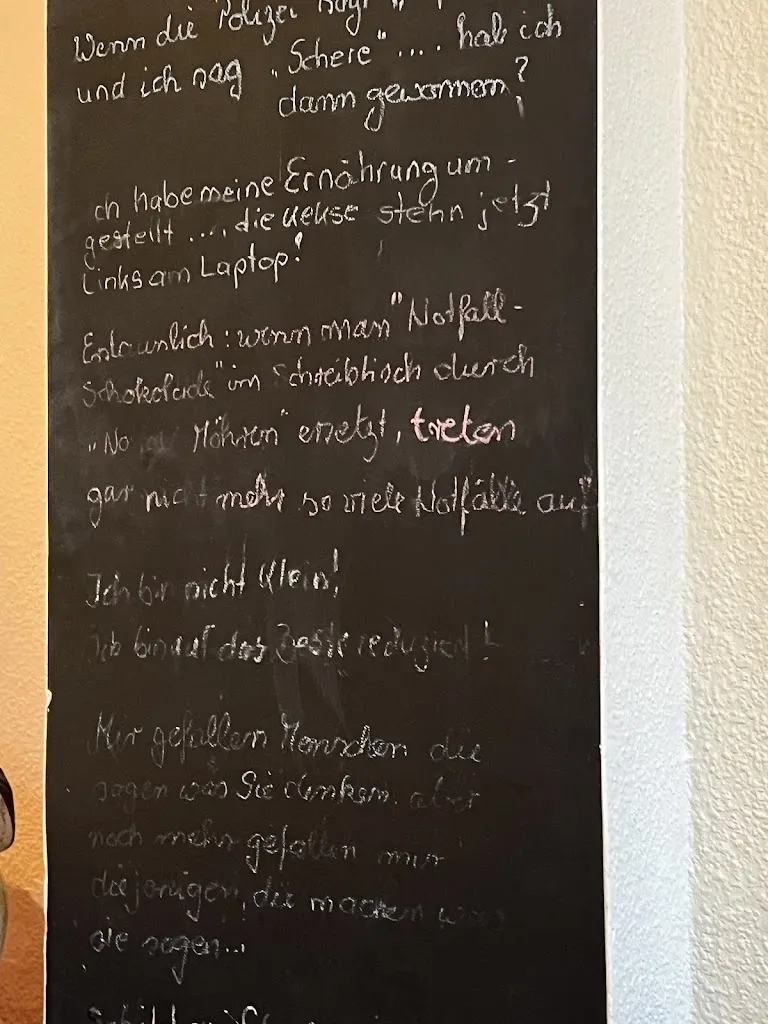 Wenn die Polizei sagt "
und ich sag "Schere" .... hab ich
dann gewonnen?
ch habe meine Ernährung um-
gestellt .... die Kekse stehn jetzt
Links am Laptop!
Erstaunlich: wenn man "Notfall-
Schokolade" im Schreibtisch durch
"No Möhren" ersetzt, treten
gar nicht mehr so viele Notfälle auf
Ich bin nicht klein!
Ich bin auf das Beste reduziert!
Mir gefallen Menschen die
sagen was Sie denken. aber
noch mehr gefallen mir
diejenigen, die machen was
sie sagen...